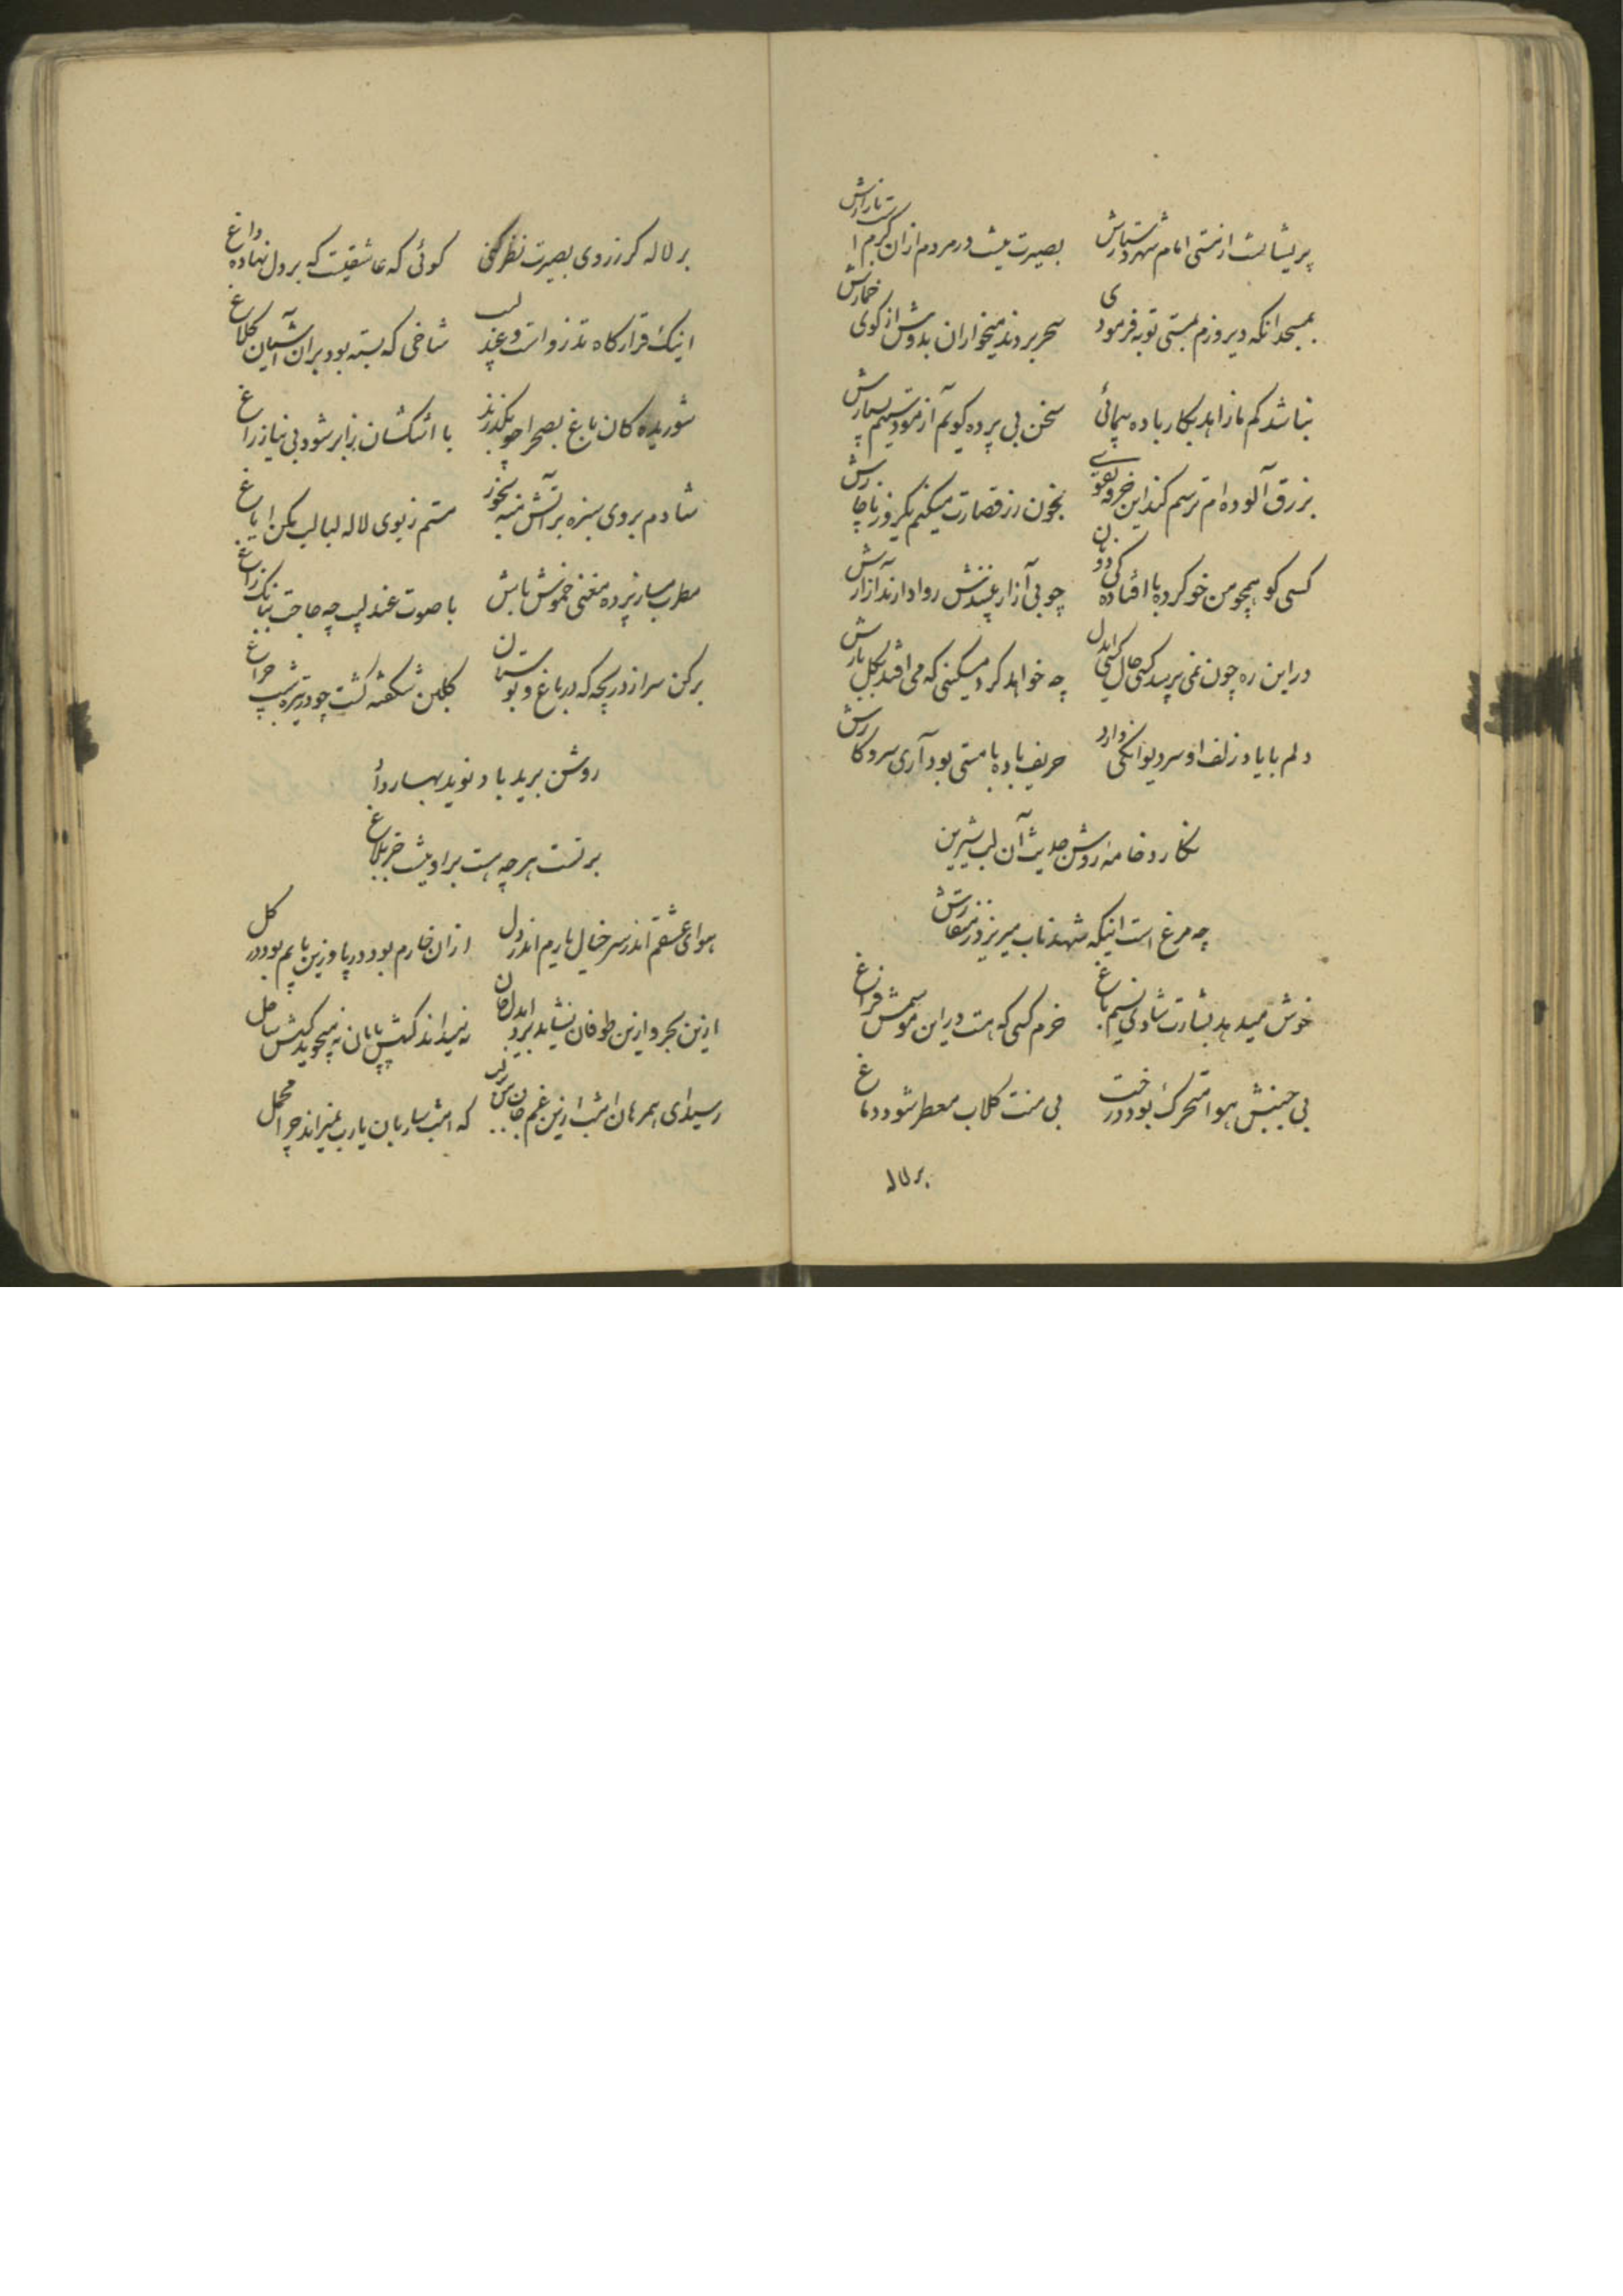 پریشانست از مستی امام شهر دستارش بصیرت نیست در مردم از آن گرم است بازارش
بمسجد انکه دیروزم بمستی توبه فرمودی سحر بردند میخواران بدوش از کوی خمارش
نباشد کم ما زاهد بکار باده پیمائی سخن بی پرده کویم آزمودستیم بسیارش
بزرق آلوده‌ام ترسم کند این خرقه تقوی بخون رز قصارت میکنم یکروز ناچارش
کسی کو همچو من خو کرده با افتادگی دوران چو بی آزار بیندش روا دارند آزارش
در این ره چون نمی پرسد کسی حال کسی ایدل چه خواهد کرد مسکینی که می افتد بکل بارش
دلم با یاد زلف او سر دیوانکی دارد حریف باده با مستی بود آری سر و کارش
نکارد خامه روشن حدیث آن لب شیرین
چه مرغ است اینکه شهد ناب میریزد ز منقارش
خوش میدهد بشارت شادی نسیم باغ خرم کسی که هست در این موسمش فراغ
بی جنبش هوا متحرک بود درخت بی منت کلاب معطر شود دماغ
بر لاله
بر لاله کر ز روی بصیرت نظر کنی کوئی که عاشقیست که بر دل نهاده داغ
اینک قرارکاه تذرو است و عندلیب شاخی که بسته بود بر آن آشیان کلاغ
شوریده کان باغ بصحرا چو بگذرند با اشکشان برابر شود بی نیاز راغ
شادم بروی سبزه بر آتش منه بخور مستم ز بوی لاله لبالب مکن ایاغ
مطرب مساز پرده مغنی خموش باش با صوت عندلیب چه حاجت ببانک زاغ
برکن سر از دریچه که در باغ و بوستان کلبن شکفته کشت چو در تیره شب چراغ
روشن برید باد نوید بهار داد
بر تست هر چه هست بر او نیست جز بلاغ
هوای عشقم اندر سر خیال یارم اندر دل از آن خارم بود در پا وزین پایم بود در کل
ازین بحر و ازین طوفان نشاید برد ایدل جان نمیداند کسش پایان نمیجوید کسش ساحل
رسید ای همرهان امشب ازین غم جان من بر لب که امشب ساربان یارب نمیراند چرا محمل